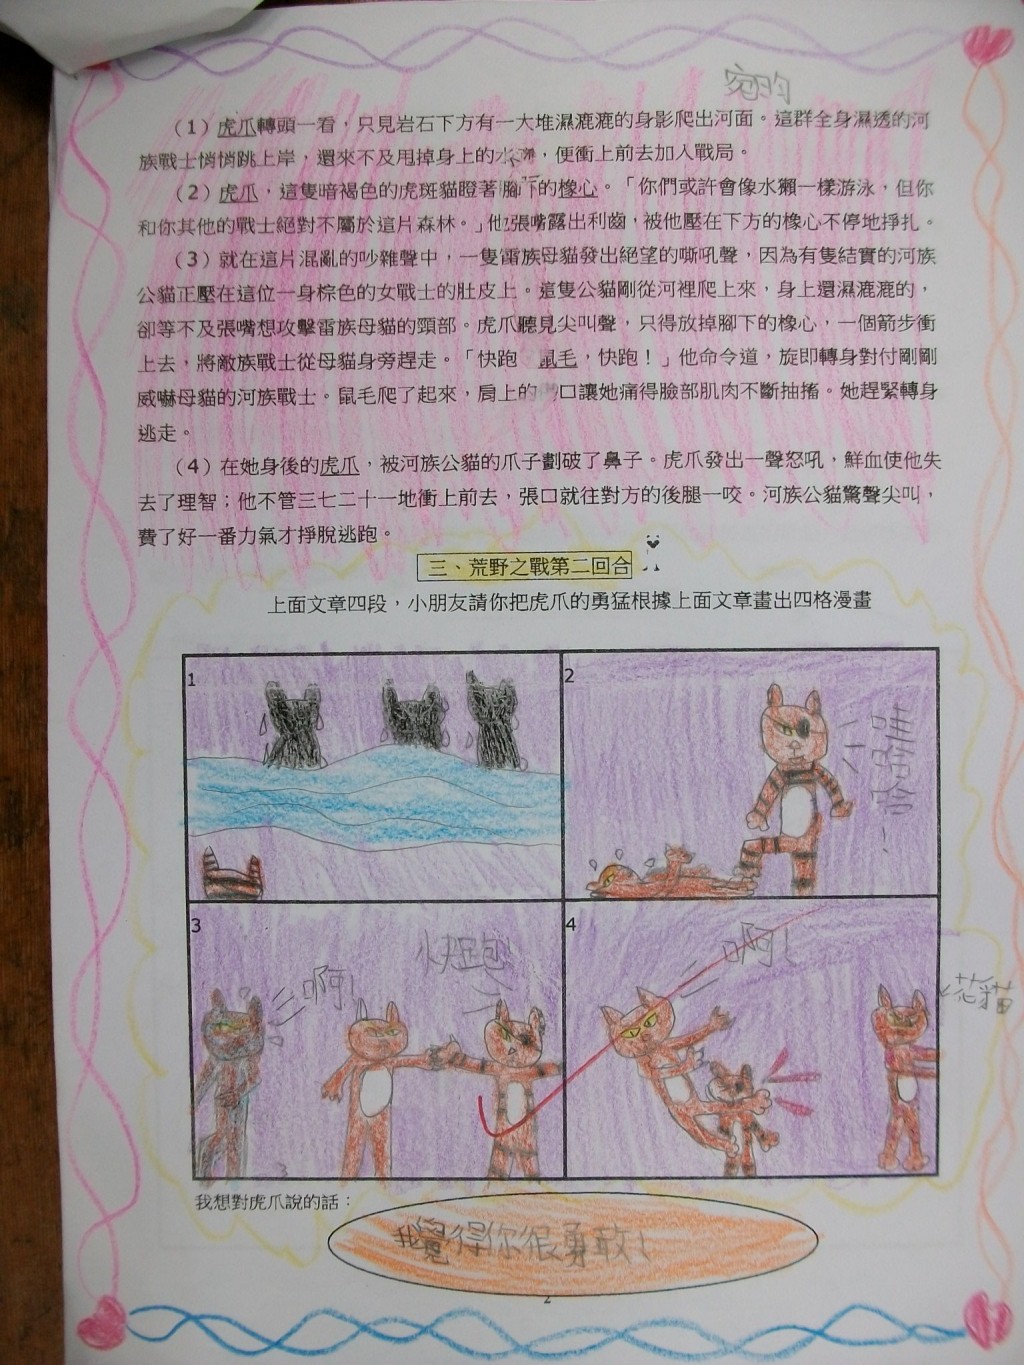 宛昀
（1）虎爪轉頭一看，只見岩石下方有一大堆濕漉漉的身影爬出河面。這群全身濕透的河
族戰士悄悄跳上岸，還來不及甩掉身上的水，便衝上前去加入戰局。
（2）虎爪，這隻暗褐色的虎斑貓瞪著腳下的橡心。「你們或許會像水獺一樣游泳，但你
和你其他的戰士絕對不屬於這片森林。」他張嘴露出利齒，被他壓在下方的橡心不停地掙扎。
（3）就在這片混亂的吵雜聲中，一隻雷族母貓發出絕望的嘶吼聲，因為有隻結實的河族
公貓正壓在這位一身棕色的女戰士的肚皮上。這隻公貓剛從河裡爬上來，身上還濕漉漉的，
卻等不及張嘴想攻擊雷族母貓的頸部。虎爪聽見尖叫聲，只得放掉腳下的橡心，一個箭步衝
上去，將敵族戰士從母貓身旁趕走。「快跑 鼠毛，快跑！」他命令道，旋即轉身對付剛剛
威嚇母貓的河族戰士。鼠毛爬了起來，肩上的口讓她痛得臉部肌肉不斷抽搐。她趕緊轉身
逃走。
（4）在她身後的虎爪，被河族公貓的爪子劃破了鼻子。虎爪發出一聲怒吼，鮮血使他失
去了理智；他不管三七二十一地衝上前去，張口就往對方的後腿一咬。河族公貓驚聲尖叫，
費了好一番力氣才掙脫逃跑。
三、荒野之戰第二回合
上面文章四段，小朋友請你把虎爪的勇猛根據上面文章畫出四格漫畫
1
2
哇哈哈
3
啊！
快跑！
4
啊！
花貓
我想對虎爪說的話：
我覺得你很勇敢！
2